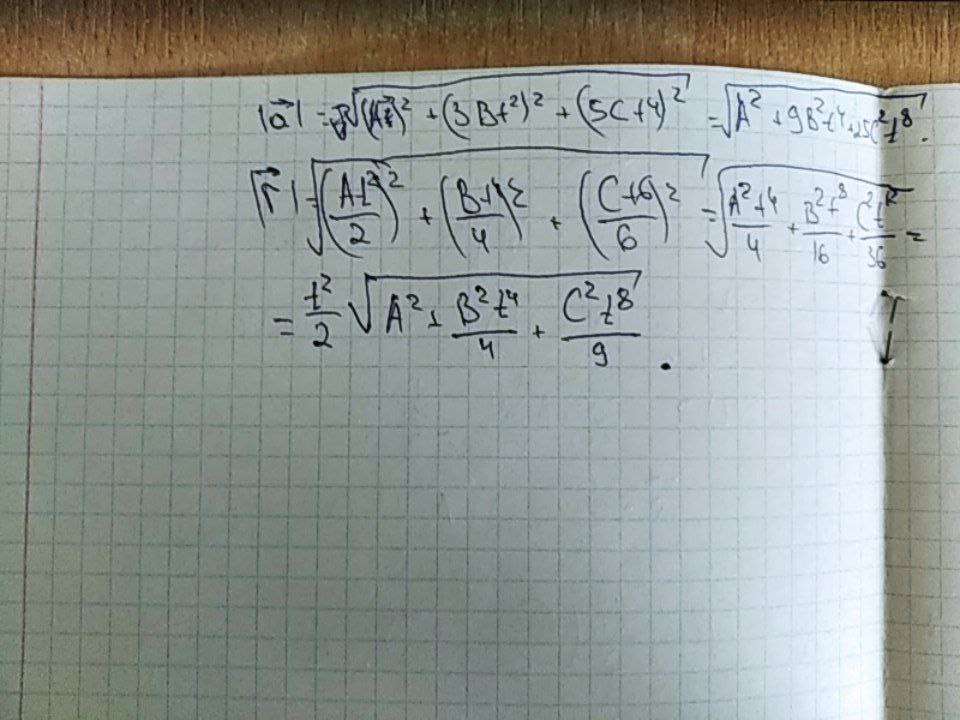 |a⃗| = √((A)² + (3Bt²)² + (5Ct⁴)²) = √(A² + 9B²t⁴ + 25C²t⁸).
|r⃗| = √((At²/2)² + (Bt⁴/4)² + (Ct⁶/6)²) = √(A²t⁴/4 + B²t⁸/16 + C²t¹²/36) =
= t²/2 √(A² + B²t⁴/4 + C²t⁸/9).